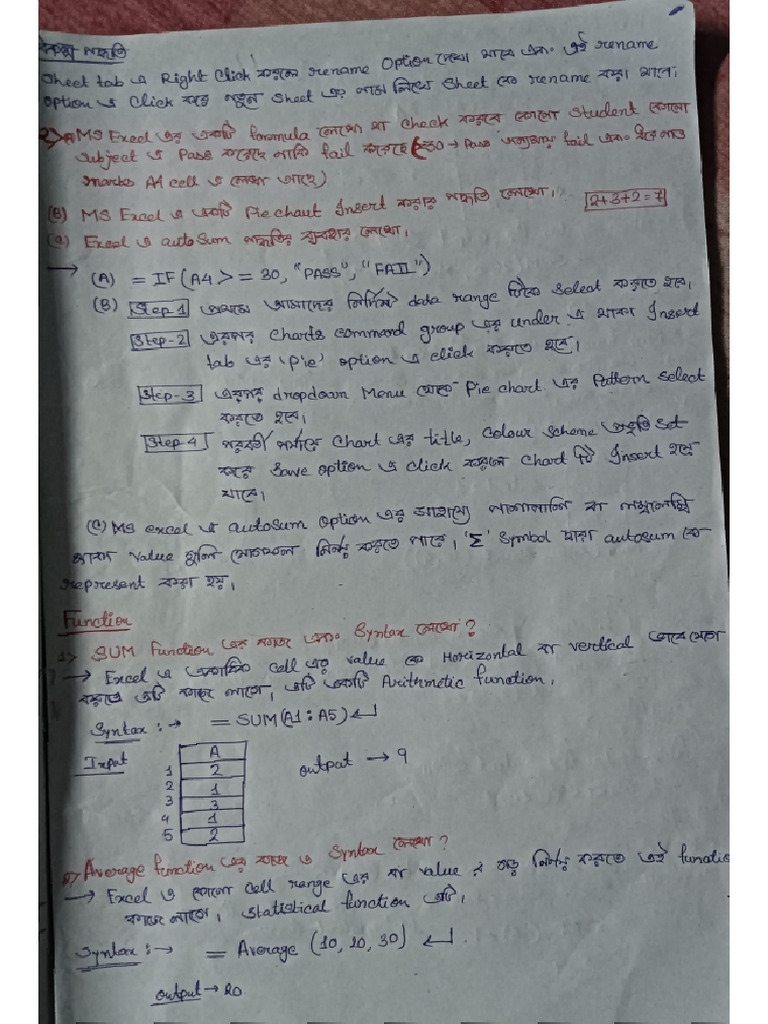 পদ্ধতি
Sheet tab এ Right Click করলে rename Option দেখা যাবে এবং এই rename
option এ Click করে নতুন Sheet এর নাম লিখে Sheet কে rename করা যাবে।
MS Excel এর একটি formula লেখো যা check করবে কোনো Student কোনো
Subject এ Pass করেছে নাকি fail করেছে (>=30 → Pass অন্যথায় fail এবং ধরে নাও
marks A4 cell এ লেখা আছে)
(B) MS Excel এ একটি Pie chart Insert করার পদ্ধতি লেখো। 2+3+2=7
(C) Excel এ autosum পদ্ধতির ব্যবহার লেখো।
→ (A) = IF(A4>=30, "PASS", "FAIL")
(B) Step-1 প্রথমে আমাদের নির্দিষ্ট data range টিকে Select করতে হবে।
Step-2 এরপর Charts command group এর under এ থাকা Insert
tab এর 'Pie' option এ click করতে হবে।
Step-3 এরপর dropdown Menu থেকে Pie chart এর Pattern select
করতে হবে।
Step-4 পরবর্তী পর্যায়ে Chart এর title, Colour Scheme প্রভৃতি Set
করে Save option এ click করলে Chart টি Insert হয়ে
যাবে।
(C) MS excel এ autosum option এর মাধ্যমে পাশাপাশি বা লম্বালম্বি
থাকা value গুলি যোগফল নির্ণয় করতে পারে। 'Σ' Symbol দ্বারা autosum কে
represent করা হয়।
Function
1) SUM Function এর কাজ এবং Syntax লেখো?
→ Excel এ একাধিক cell এর value কে Horizontal বা vertical ভাবে যোগ
করতে এটি কাজে লাগে। এটি একটি Arithmetic function।
Syntax :→ = SUM(A1:A5)↵
Input A output → 9
1 2
2 1
3 3
4 1
5 2
Average function এর কাজ ও Syntax লেখো?
→ Excel এ কোনো cell range এর বা value র গড় নির্ণয় করতে এই functio
কাজে লাগে। Statistical function এটি।
Syntax :→ = Average (10, 20, 30) ↵
output → 20